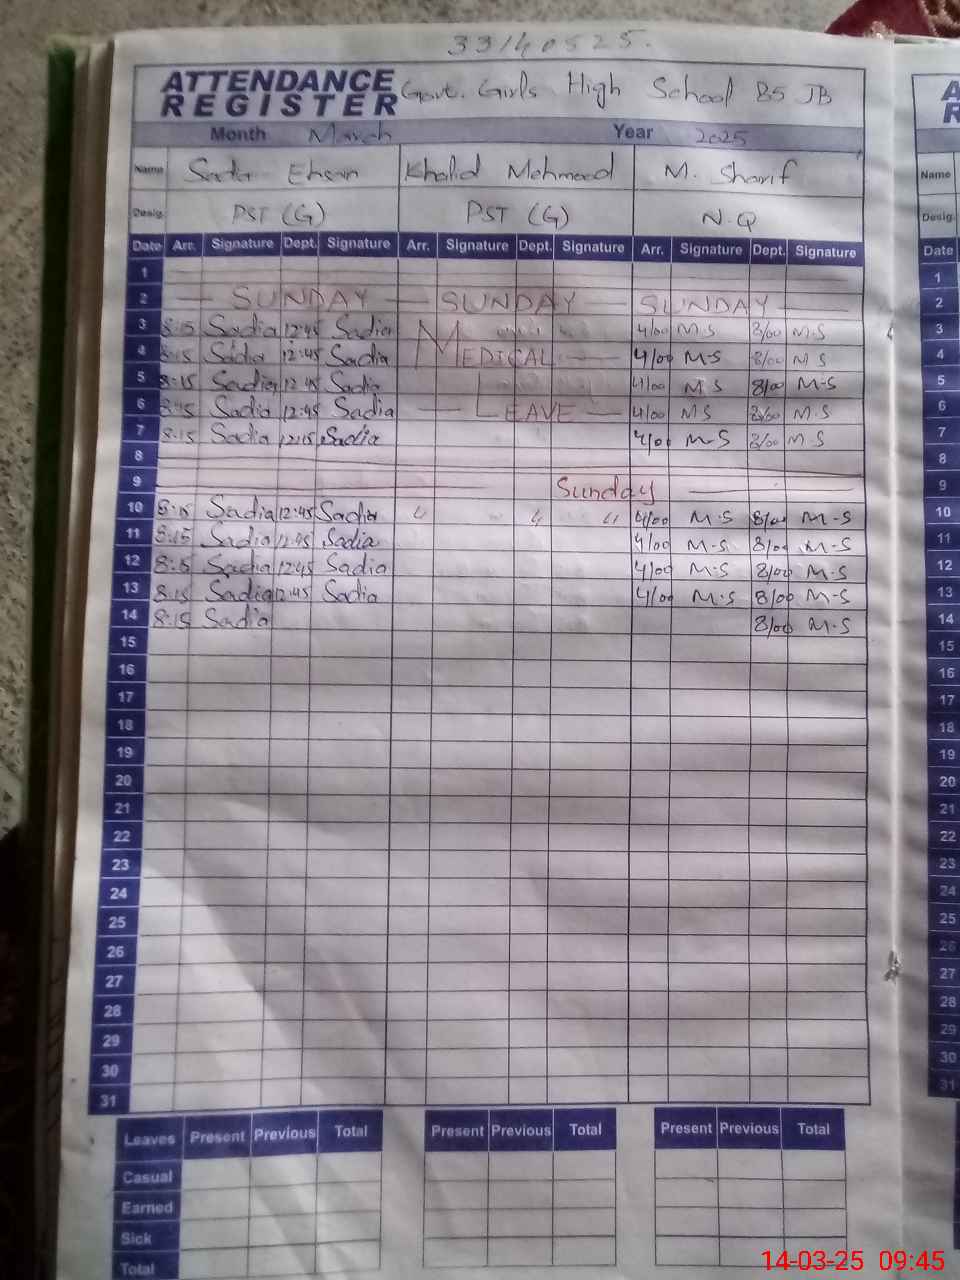 33140525.
ATTENDANCE REGISTER Govt. Girls High School 85 JB
Month March Year 2025
Name Sadia Ehsan Khalid Mehmood M. Sharif
Desig. PST (G) PST (G) N.Q
Date Arr. Signature Dept. Signature Arr. Signature Dept. Signature Arr. Signature Dept. Signature
1
2 SUNDAY SUNDAY SUNDAY
3 8:15 Sadia 12:45 Sadia 4/00 M-S 8/00 M-S
4 8:15 Sadia 12:45 Sadia MEDICAL 4/00 M-S 8/00 M S
5 8:15 Sadia 12:45 Sadia 4/00 M S 8/00 M-S
6 8:15 Sadia 12:45 Sadia LEAVE 4/00 MS 8/00 M-S
7 8:15 Sadia 12:15 Sadia 4/00 M-S 8/00 M-S
8
9 Sunday
10 8:15 Sadia 12:45 Sadia 4/00 M-S 8/00 M-S
11 8:15 Sadia 12:45 Sadia 4/00 M-S 8/00 M-S
12 8:15 Sadia 12:45 Sadia 4/00 M-S 8/00 M-S
13 8:15 Sadia 12:45 Sadia 4/00 M-S 8/00 M-S
14 8:15 Sadia 8/00 M-S
15
16
17
18
19
20
21
22
23
24
25
26
27
28
29
30
31
Leaves Present Previous Total Present Previous Total Present Previous Total
Casual
Earned
Sick
Total
A
R
Name
Desig.
Date
1
2
3
4
5
6
7
8
9
10
11
12
13
14
15
16
17
18
19
20
21
22
23
24
25
26
27
28
29
30
31
14-03-25 09:45